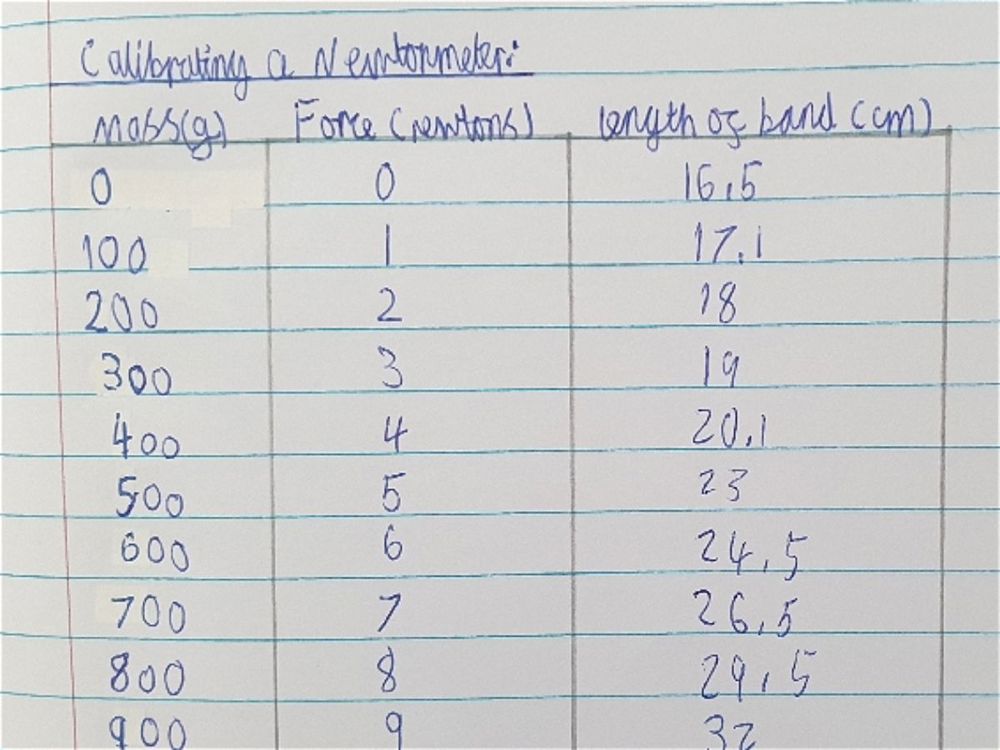 Calibrating a Newtonmeter:
mass(g) Force (newtons) length of band (cm)
0 0 16.5
100 1 17.1
200 2 18
300 3 19
400 4 20.1
500 5 23
600 6 24.5
700 7 26.5
800 8 29.5
900 9 32